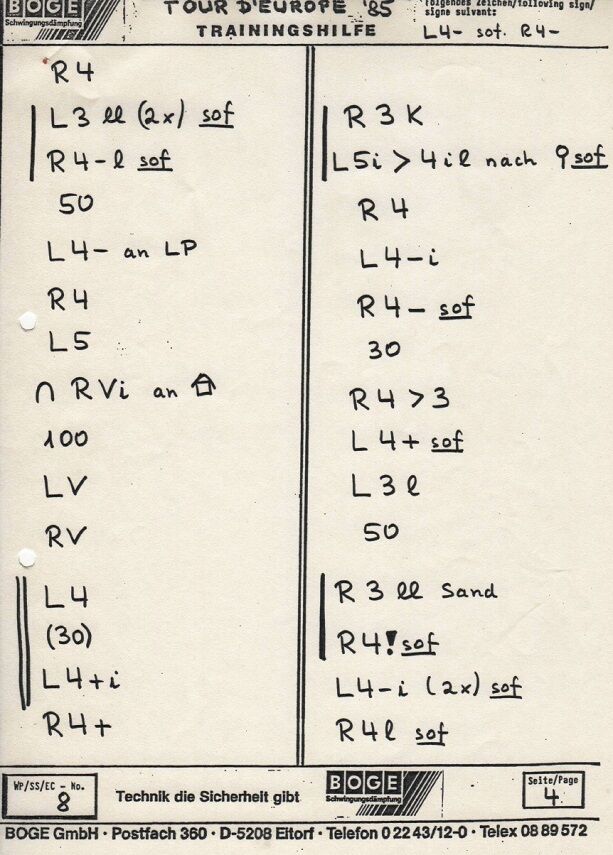 BOGE
Schwingungsdämpfung
TOUR D'EUROPE '85
TRAININGSHILFE
folgendes Zeichen/following sign/
signe suivant:
L4- sof. R4-
R4
L3 ll (2x) sof
R4-l sof
50
L4- an LP
R4
L5
∩ RVi an
100
LV
RV
L4
(30)
L4+i
R4+
R3K
L5i > 4il nach sof
R4
L4-i
R4- sof
30
R4>3
L4+ sof
L3l
50
R3 ll Sand
R4! sof
L4-i (2x) sof
R4l sof
WP/SS/EC - No.
8
Technik die Sicherheit gibt
BOGE
Schwingungsdämpfung
Seite/Page
4
BOGE GmbH · Postfach 360 · D-5208 Eitorf · Telefon 0 22 43/12-0 · Telex 08 89 572